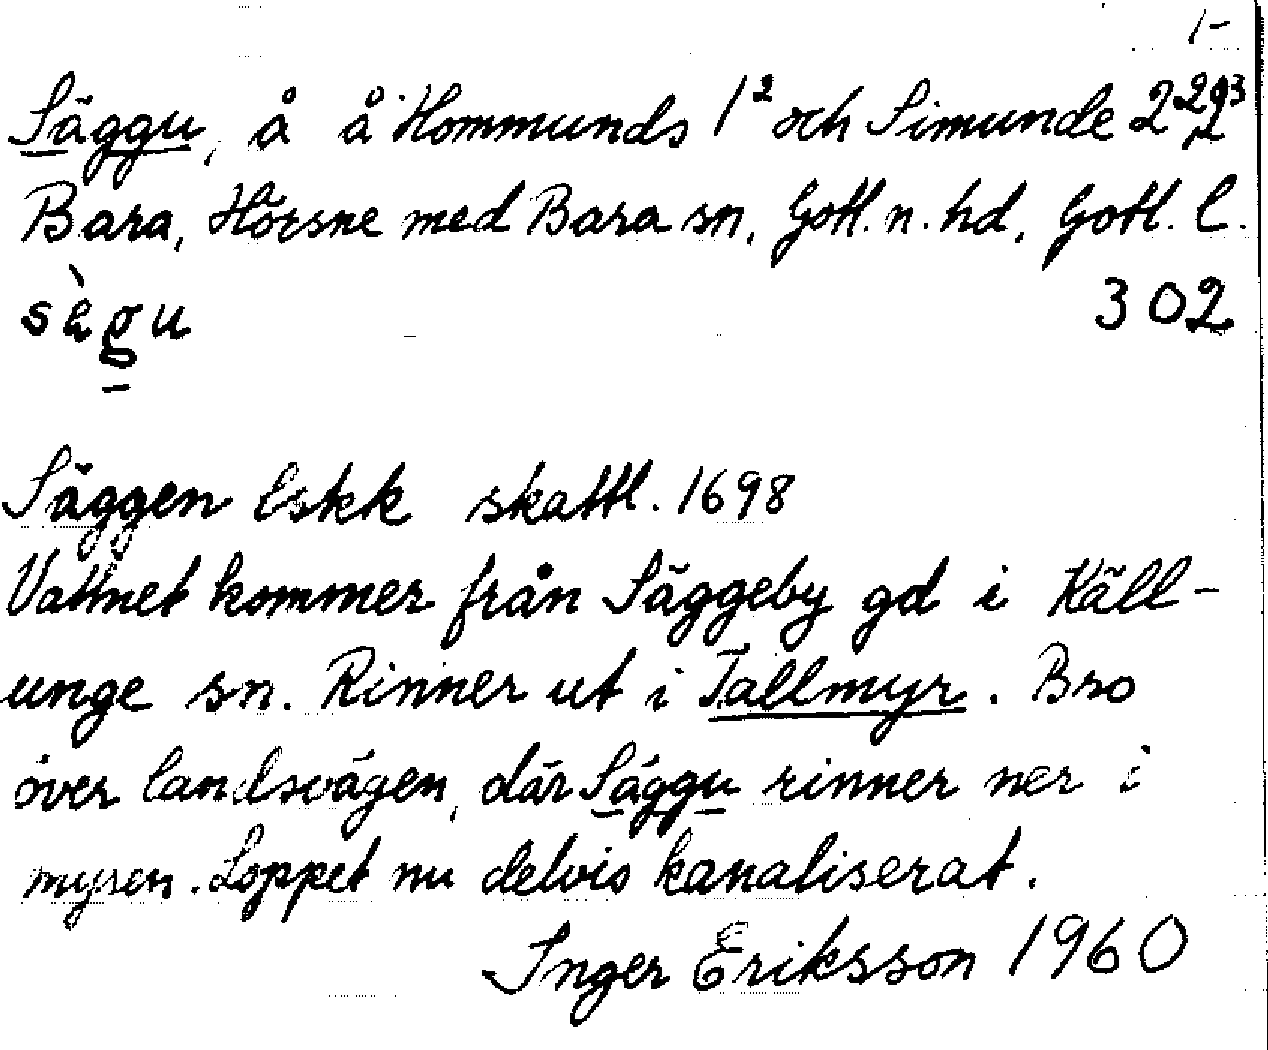 1-
Säggu, å å Hommunds 1² och Simunde 2²,2³
Bara, Hörsne med Bara sn, Gotl. n. hd, Gotl. l.
sègu 302
Säggen lskk skattl. 1698
Vattnet kommer från Säggeby gd i Käll-
unge sn. Rinner ut i Tallmyr. Bro
över landsvägen, där Säggu rinner ner i
myren. Loppet nu delvis kanaliserat.
Inger Eriksson 1960